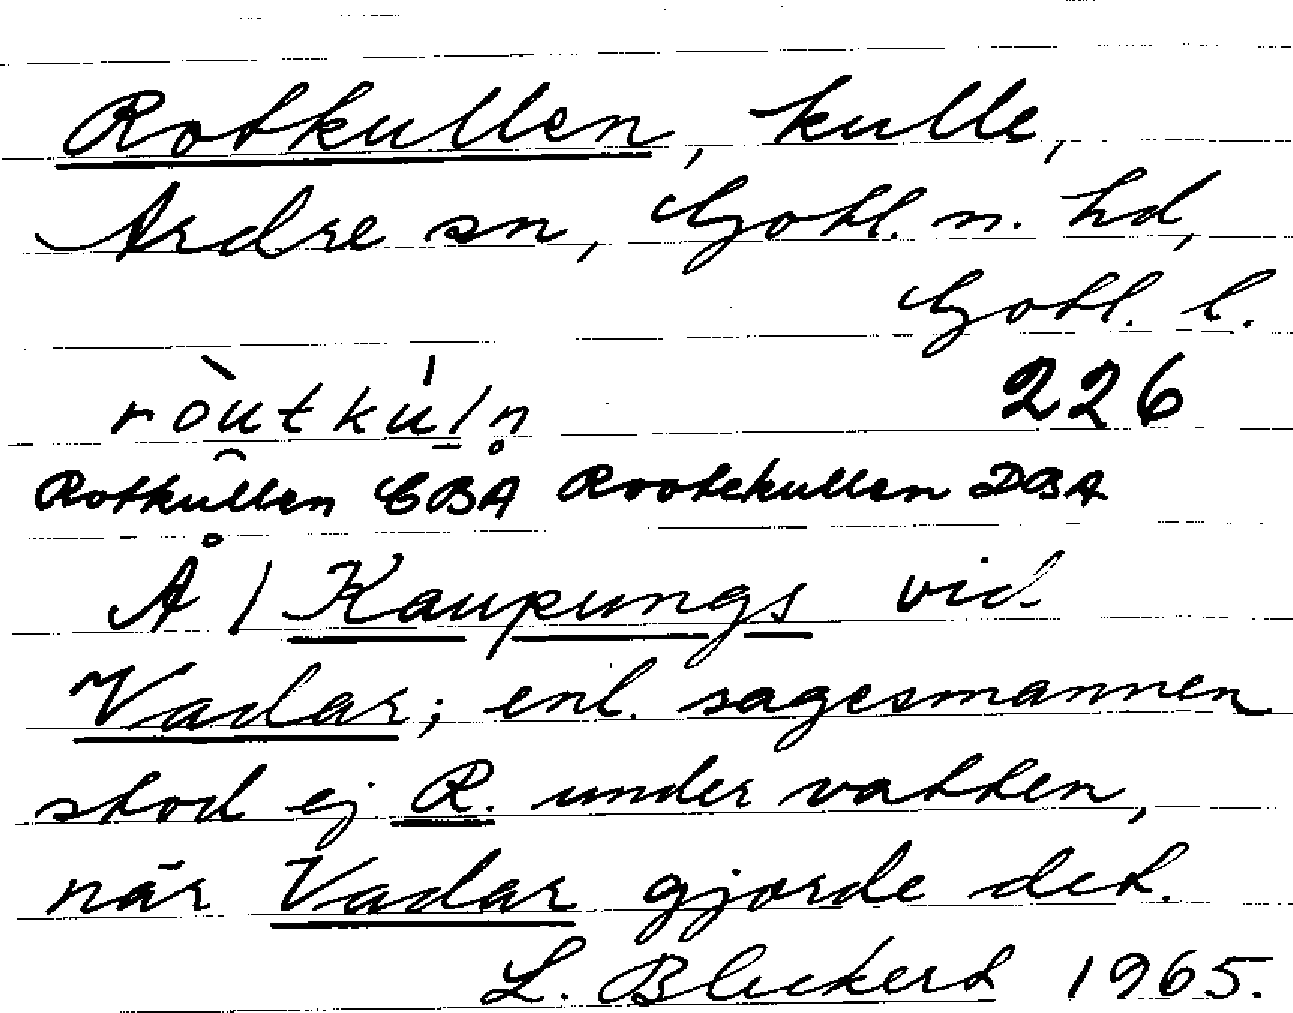 Rotkullen, kulle,
Ardre sn, Gotl. n. hd,
Gotl. l.
ròutku̯ln̥ 226
Rotkullen EBA Rootekullen DBA
Å / Kaupungs vid
Vadar; enl. sagesmannen
stod ej R. under vatten,
när Vadar gjorde det.
L. Bluckert 1965.